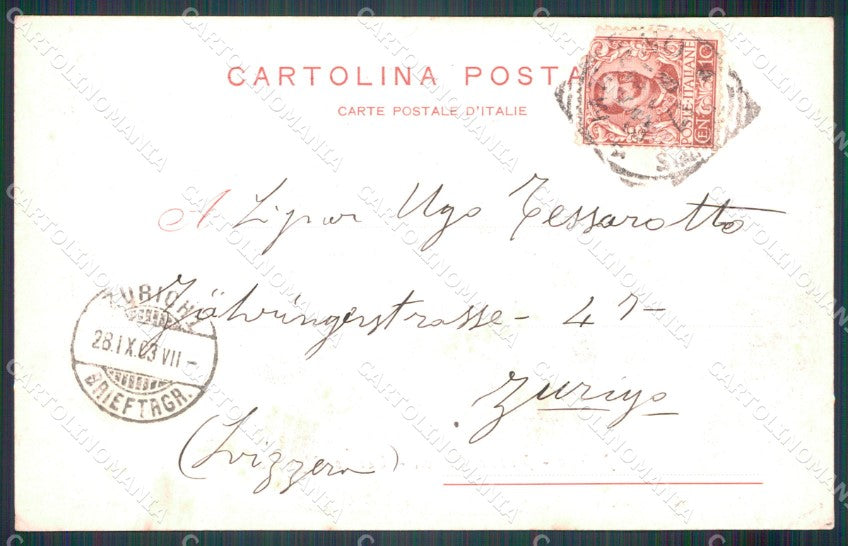 CARTOLINA POSTA
CARTE POSTALE D'ITALIE
POSTE ITALIANE
CEN 10
A Sigor Ugo Tessarotto
Zähringerstrasse - 47 -
Zurigo
(Svizzera)
ZÜRICH
28.IX.03 VII -
BRIEFTRGR.
CARTOLINOMANIA